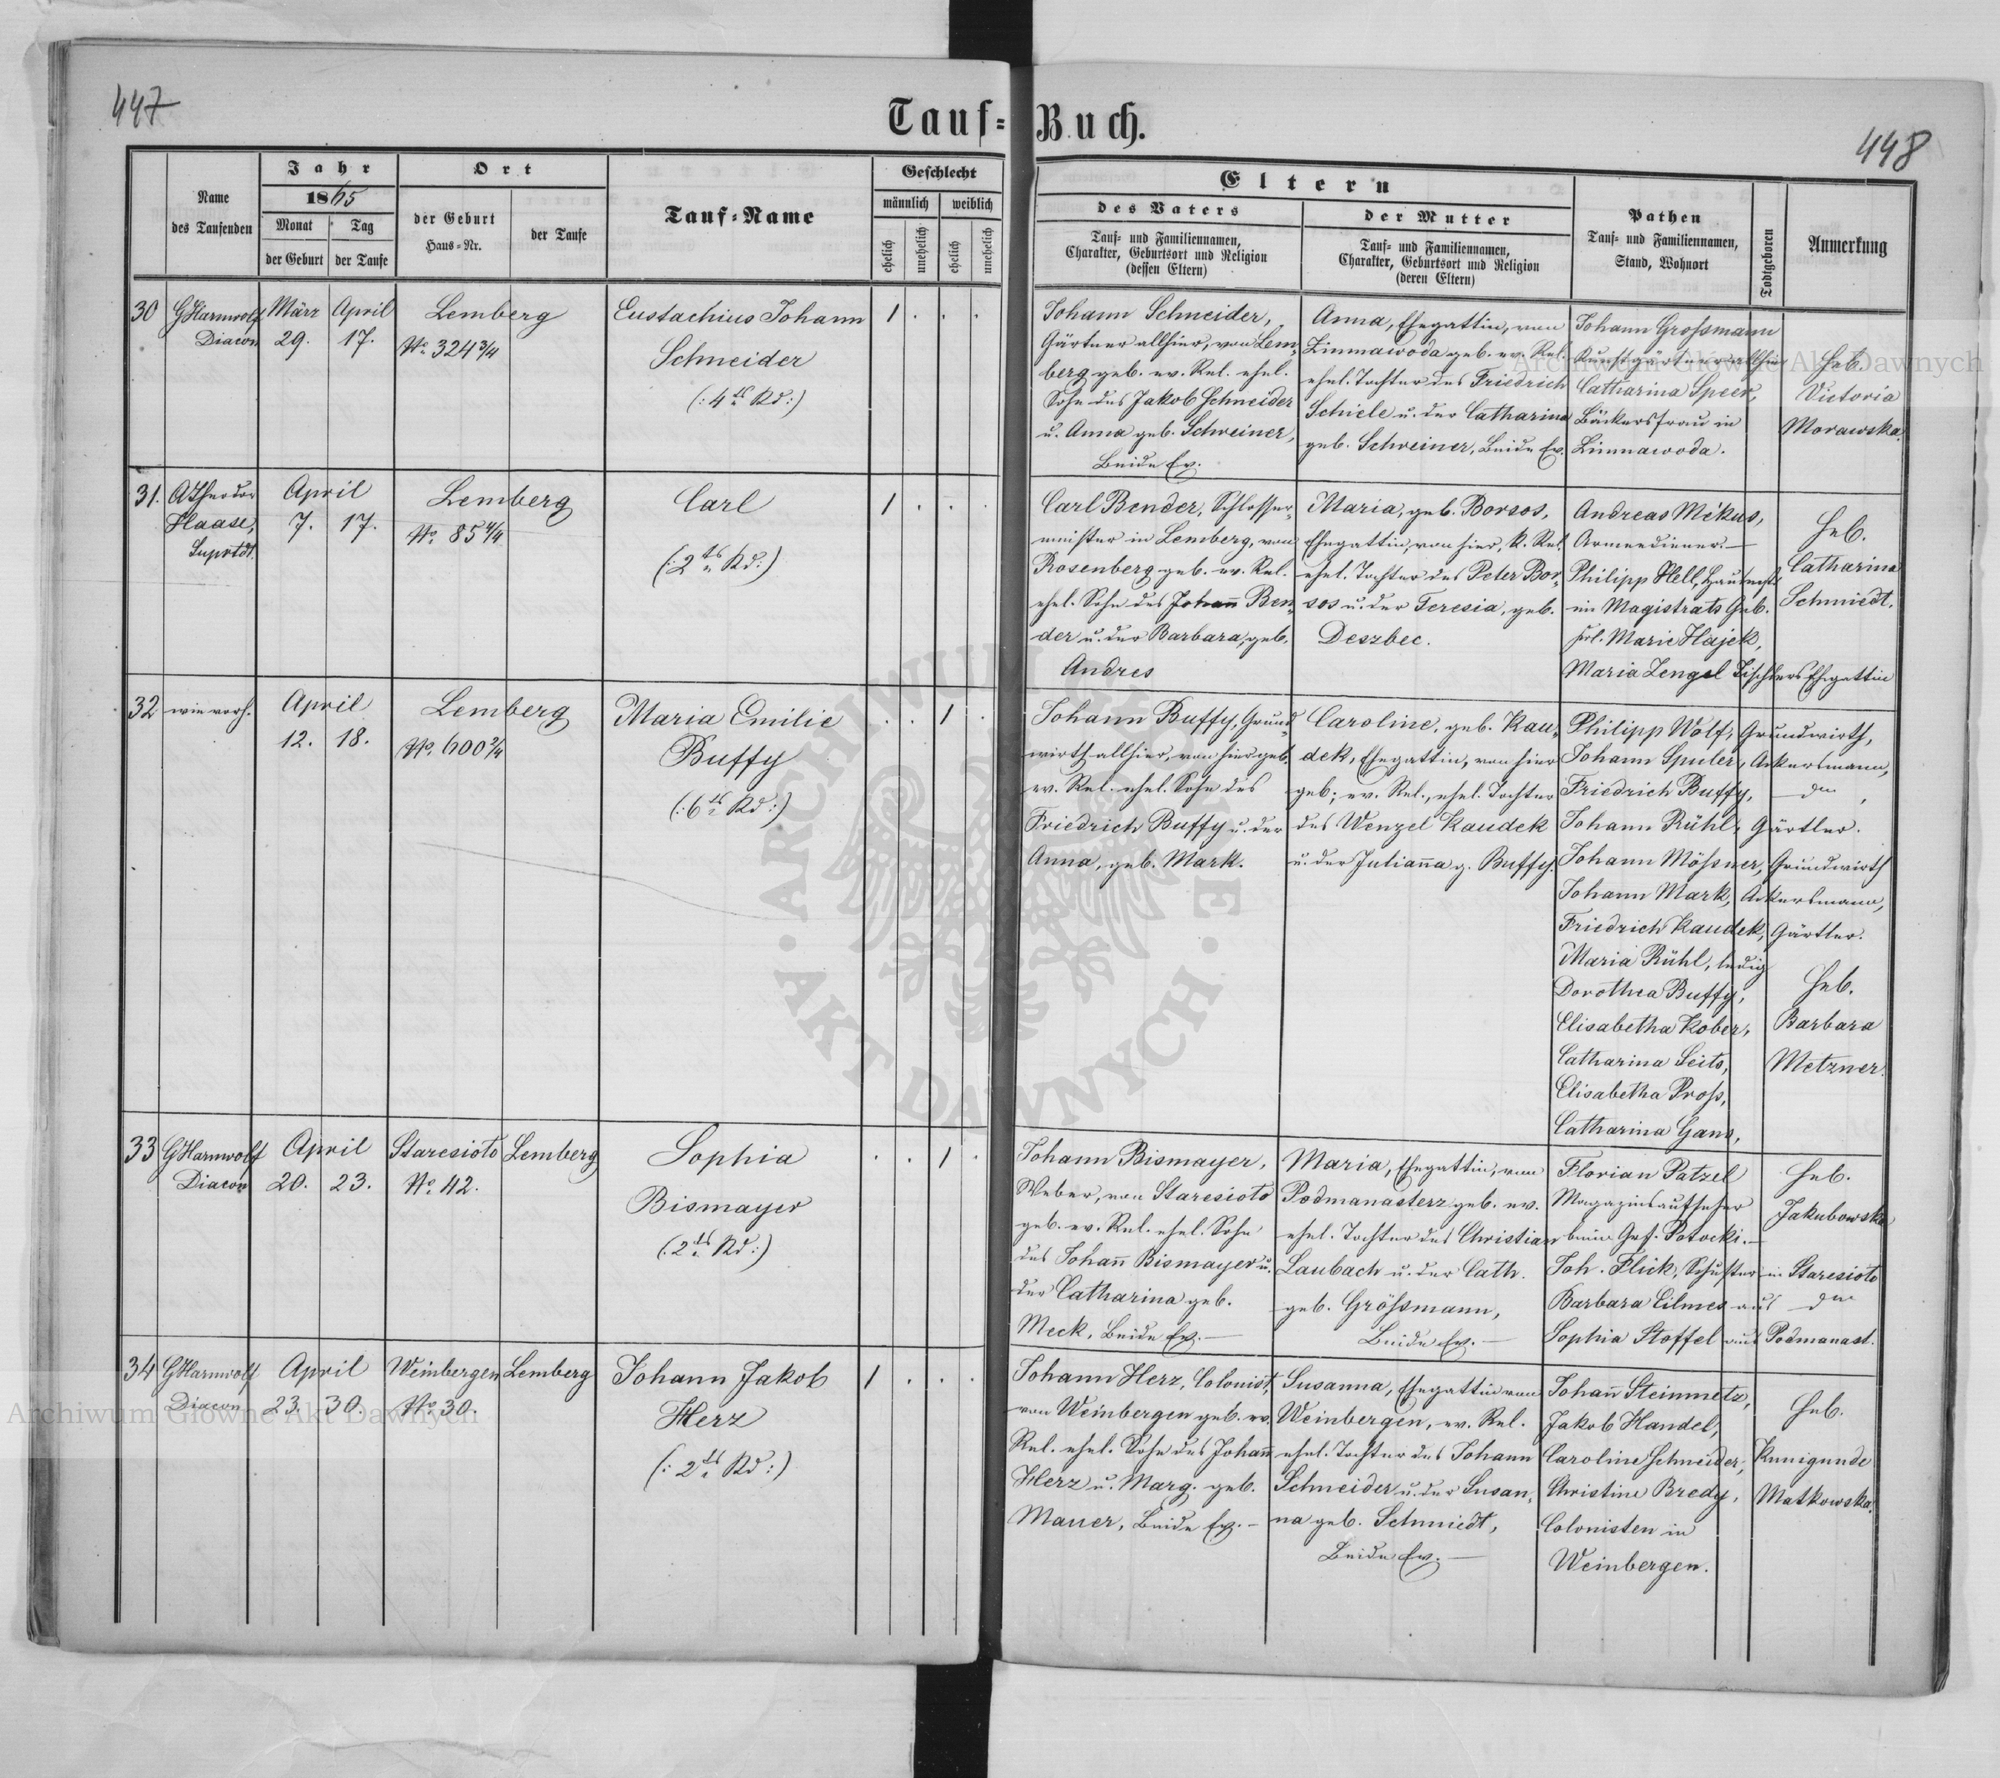 447
Tauf-Buch.
448
Name
des Taufenden
Jahr
1865
Monat
der Geburt
Tag
der Taufe
Ort
der Geburt
Haus-Nr.
der Taufe
Tauf-Name
Geschlecht
männlich
weiblich
ehelich
unehelich
ehelich
unehelich
Eltern
des Vaters
Tauf- und Familiennamen,
Charakter, Geburtsort und Religion
(dessen Eltern)
der Mutter
Tauf- und Familiennamen,
Charakter, Geburtsort und Religion
(deren Eltern)
Pathen
Tauf- und Familiennamen,
Stand, Wohnort
Todtgeboren
Anmerkung
30
GHarnwolf
Diacon
März
29.
April
17.
Lemberg
No. 324 3/4
Eustachius Johann
Schneider
(: 4ts Kd :)
1 . . .
Johann Schneider,
Gärtner allhier, von Lem-
berg geb. ev. Rel. ehel.
Sohn des Jakob Schneider
u. Anna geb. Schreiner,
Beide Ev.
Anna, Ehegattin, von
Linnawoda geb. ev. Rel.
ehel. Tochter des Friedrich
Schiele u. der Catharina
geb. Schreiner, Beide Ev.
Johann Grossmann
Kunstgärtner allhier
Catharina Speer,
Bäckersfrau in
Linnawoda.
Heb.
Victoria
Morawska.
31.
ATheodor
Haase,
Suprtdt.
April
7. 17.
Lemberg
No. 85 4/4
Carl
(: 2ts Kd :)
1 . . .
Carl Bender, Schlosser-
meister in Lemberg, von
Rosenberg geb. ev. Rel.
ehel. Sohn des Johann Ben-
der u. der Barbara, geb.
Andres
Maria, geb. Borsos,
Ehegattin, von hier, k. Rel.
ehel. Tochter des Peter Bor-
sos u. der Teresia, geb.
Deszbec.
Andreas Mékus,
Armeediener. —
Philipp Hell, Hausmstr
im Magistrats Geb.
Frl. Marie Hajek,
Maria Zengel Tischlers Ehegattin
Heb.
Catharina
Schmiedt.
32
wie vorh.
April
12. 18.
Lemberg
No. 600 2/4
Maria Emilie
Buffy
(: 6ts Kd :)
. . 1 .
Johann Buffy, Grund-
wirth allhier, von hier geb.
ev. Rel. ehel. Sohn des
Friedrich Buffy u. der
Anna, geb. Mark.
Caroline, geb. Kau-
dek, Ehegattin, von hier
geb; ev. Rel., ehel. Tochter
des Wenzel Kaudek
u. der Julianna g. Buffy.
Philipp Wolf, Grundwirth,
Johann Spuler, Ackersmann,
Friedrich Buffy, — dto,
Johann Rühl, Gärtler.
Johann Mössner, Grundwirth
Johann Mark, Ackersmann,
Friedrich Kaudek, Gärtler.
Maria Rühl, ledig
Dorothea Buffy,
Elisabetha Kober,
Catharina Seits,
Elisabetha Pross,
Catharina Gans,
Heb.
Barbara
Metzner.
33
GHarnwolf
Diacon
April
20. 23.
Staresioto
No. 42.
Lemberg
Sophia
Bismayer
(: 2ts Kd :)
. . 1 .
Johann Bismayer,
Weber, von Staresioto
geb. ev. Rel. ehel. Sohn
des Johann Bismayer u.
der Catharina geb.
Meck, Beide Ev. —
Maria, Ehegattin, von
Podmanasterz geb. ev.
ehel. Tochter des Christian
Laubach u. der Cath.
geb. Grössmann,
Beide Ev. —
Florian Patzel
Magazinsaufseher
beim Grf. Potocki. —
Joh. Flick, Schuster in Staresioto
Barbara Eilmes aus dto
Sophia Stoffel aus Podmanast.
Heb.
Jakubowska
34
GHarnwolf
Diacon
April
23. 30.
Weinbergen
No. 30.
Lemberg
Johann Jakob
Herz
(: 2ts Kd :)
1 . . .
Johann Herz, Colonist,
von Weinbergen geb. ev.
Rel. ehel. Sohn des Johann
Herz u. Marg. geb.
Mauer, Beide Ev. —
Susanna, Ehegattin von
Weinbergen, ev. Rel.
ehel. Tochter des Johann
Schneider u. der Susan-
na geb. Schmiedt,
Beide Ev. —
Johann Steinmetz,
Jakob Handel,
Caroline Schneider,
Christine Bredy,
Colonisten in
Weinbergen.
Heb.
Kunigunde
Matkowska.
Archiwum Główne Akt Dawnych
Archiwum Główne Akt Dawnych
ARCHIWUM GŁÓWNE · AKT DAWNYCH ·